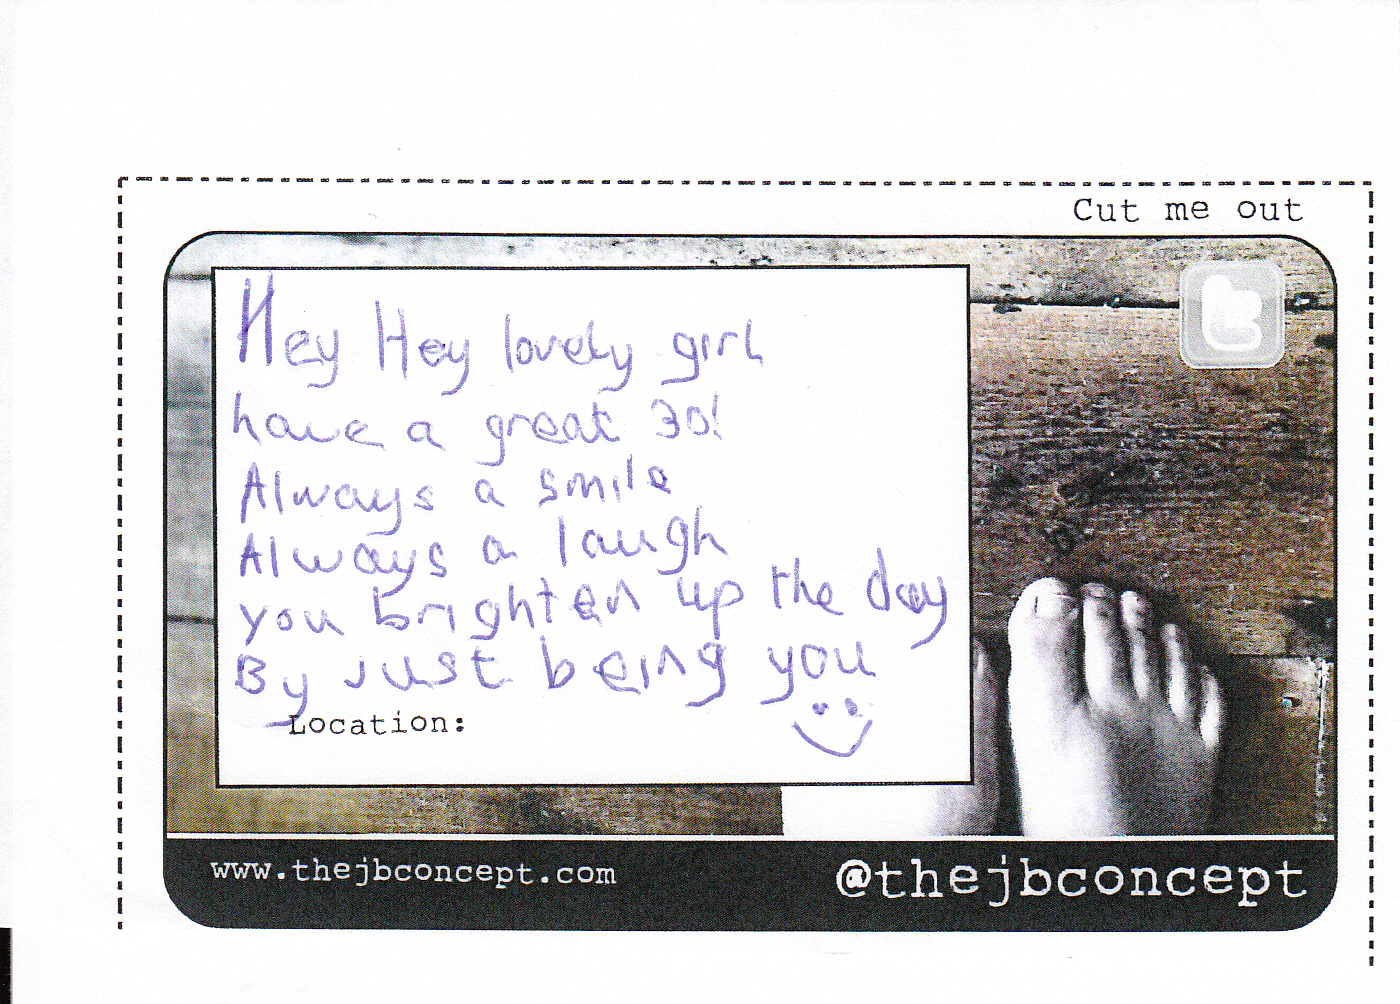 Cut me out
Hey Hey lovely girl
have a great 30!
Always a smile
Always a laugh
you brighten up the day
By just being you
Location:
www.thejbconcept.com
@thejbconcept